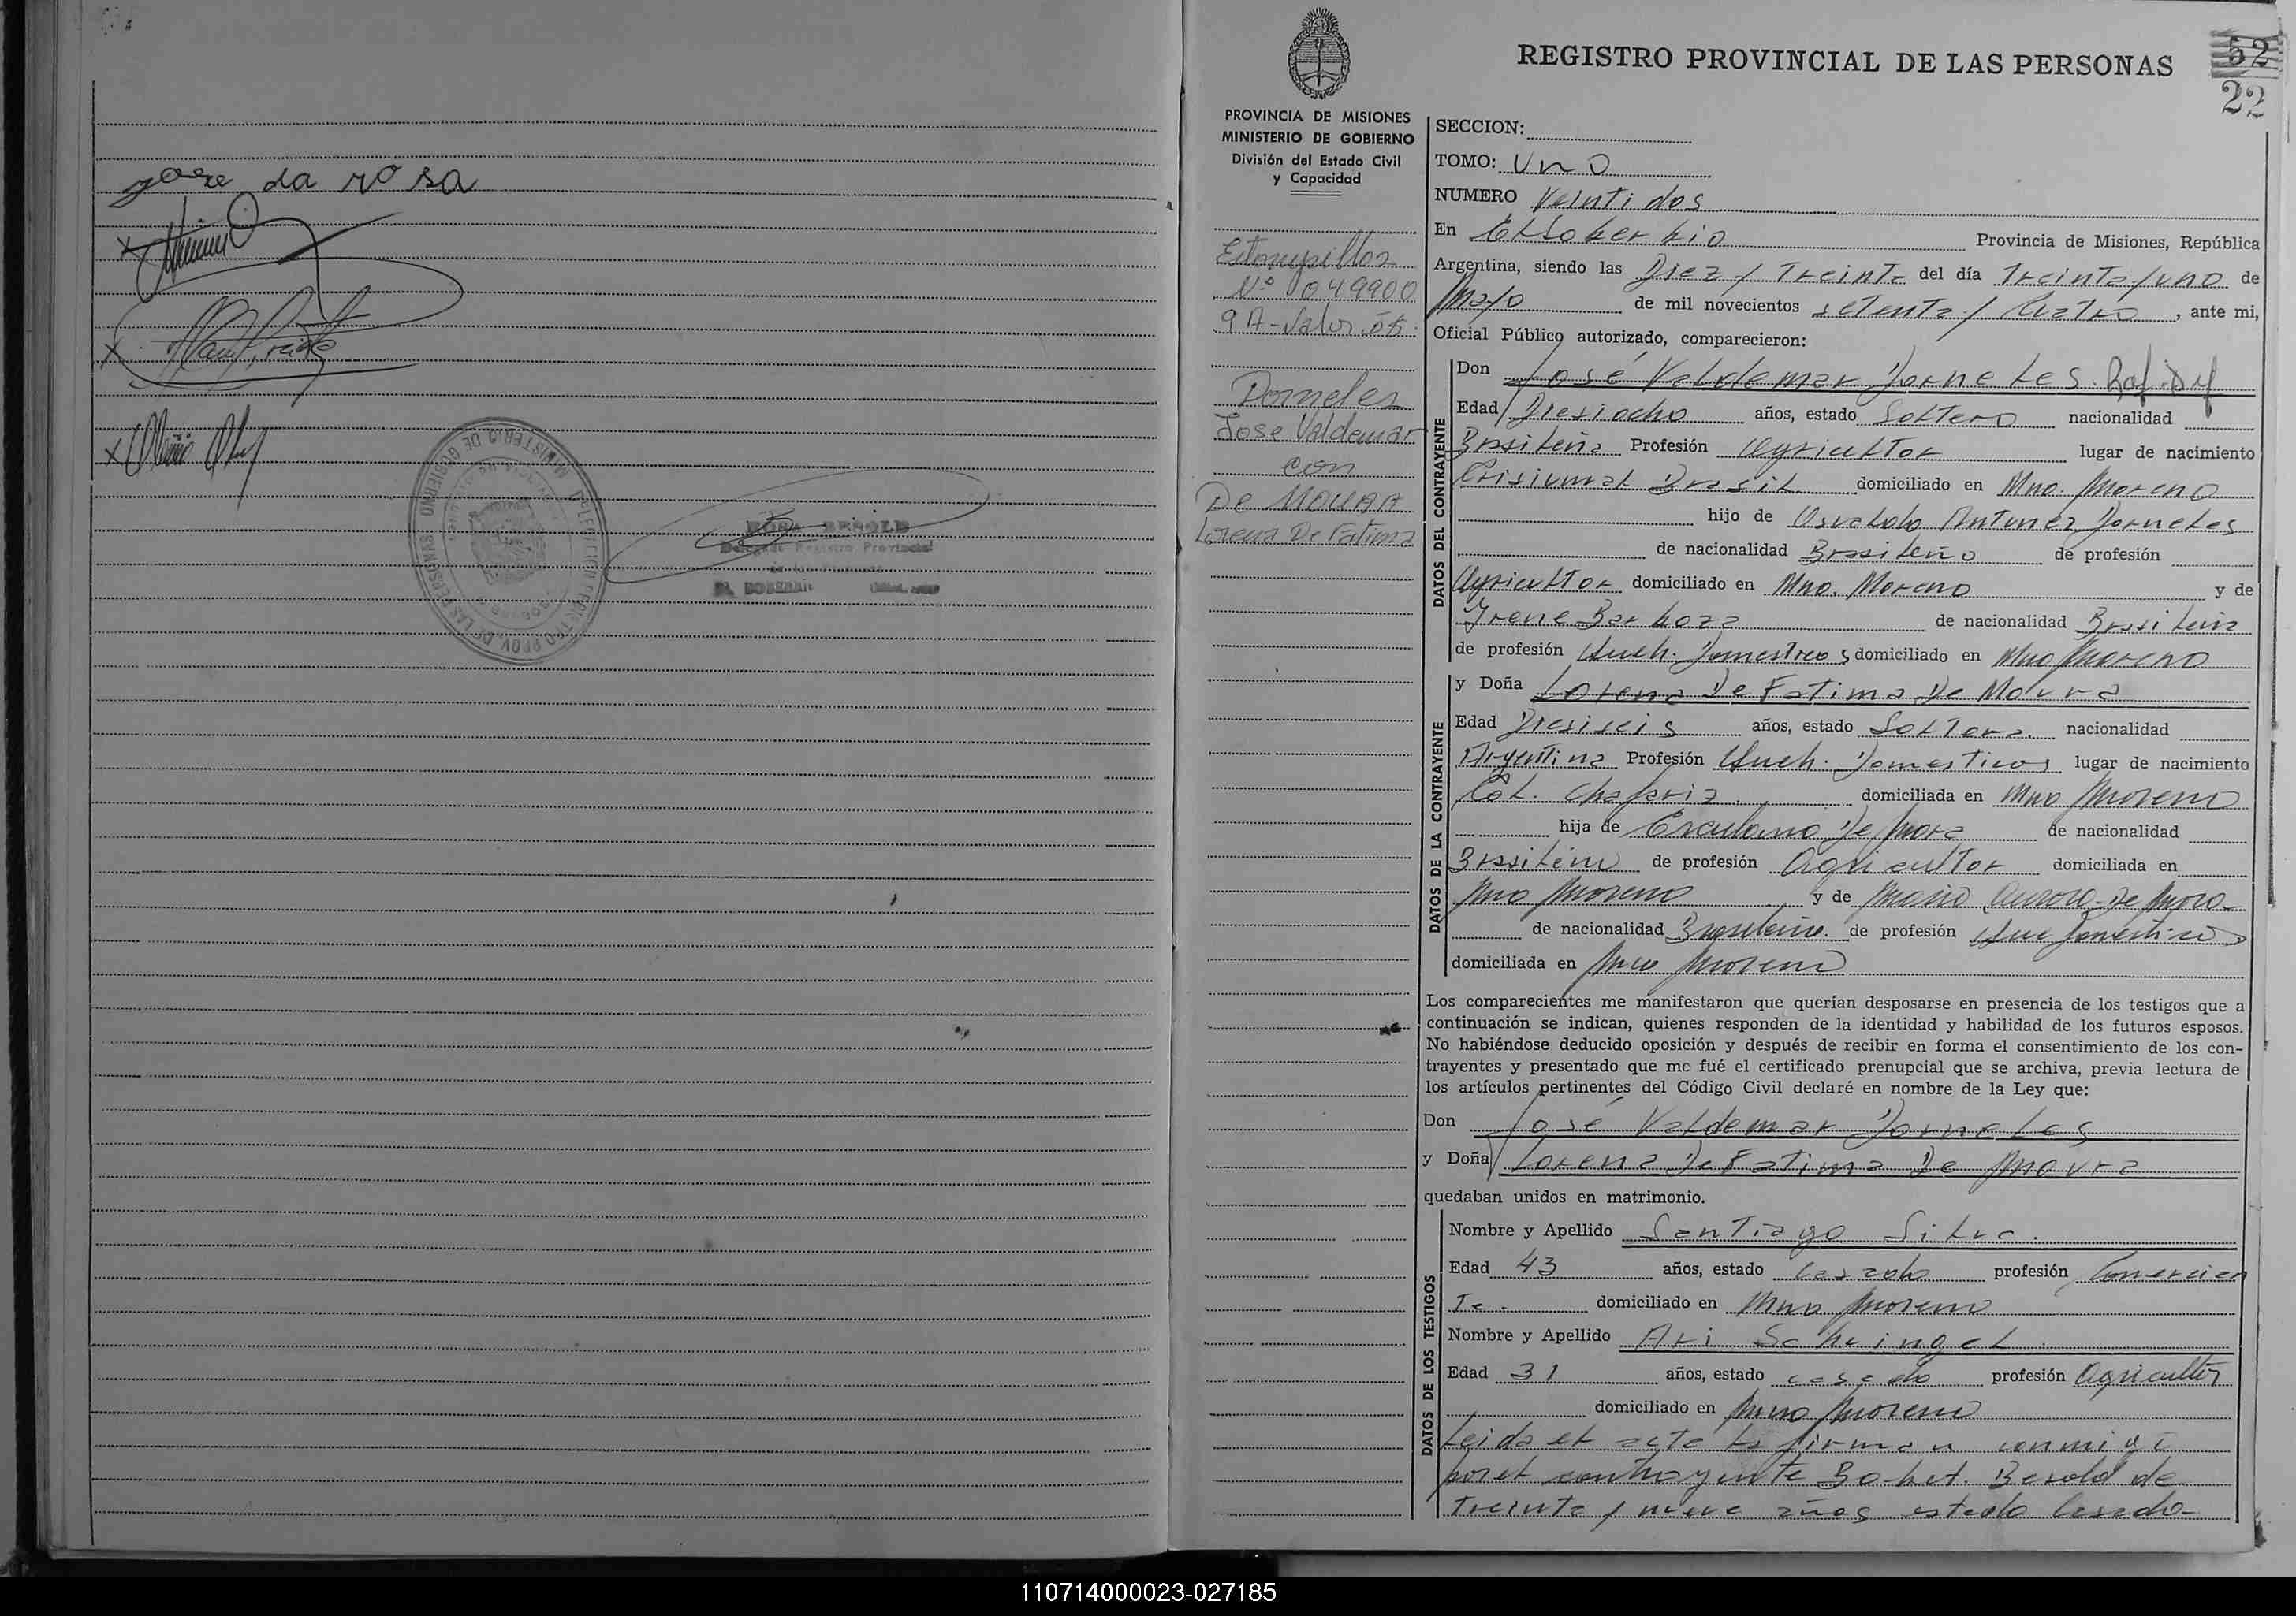 jose da rosa
MINISTERIO DE GOBIERNO
ROSA BESOLD
Delegado Registro Provincial
de las Personas
REGISTRO PROVINCIAL DE LAS PERSONAS
52
22
PROVINCIA DE MISIONES
MINISTERIO DE GOBIERNO
División del Estado Civil
y Capacidad
Estampillas
Nº 049900
9 A - Valor
Dorneles
Jose Valdemar
con
De MOURA
Lorena De Fatima
SECCION:
TOMO: Uno
NUMERO Veintidos
En El Soberbio Provincia de Misiones, República
Argentina, siendo las Diez y Treinta del día Treinta y uno de
Mayo de mil novecientos setenta y Cuatro, ante mi,
Oficial Público autorizado, comparecieron:
DATOS DEL CONTRAYENTE
Don José Valdemar Dorneles
Edad Diesiocho años, estado Soltero nacionalidad
Brasileña Profesión Agricultor lugar de nacimiento
Crisiumal Brasil domiciliado en Mno. Moreno
hijo de Osvaldo Antunez Dorneles
de nacionalidad Brasileño de profesión
Agricultor domiciliado en Mno. Moreno y de
Irene Barboza de nacionalidad Brasileña
de profesión Queh. Domesticos domiciliado en Mno Moreno
DATOS DE LA CONTRAYENTE
y Doña Lorena De Fatima De Moura
Edad Diesiseis años, estado Soltera nacionalidad
Argentina Profesión Queh. Domesticos lugar de nacimiento
Col. Chafariz domiciliada en Mno Moreno
hija de Erculano De Mora de nacionalidad
Brasileño de profesión Agricultor domiciliada en
Mno Moreno y de Maria Aurora De Mora
de nacionalidad Brasileña de profesión Que Domesticos
domiciliada en Mno Moreno
Los comparecientes me manifestaron que querían desposarse en presencia de los testigos que a
continuación se indican, quienes responden de la identidad y habilidad de los futuros esposos.
No habiéndose deducido oposición y después de recibir en forma el consentimiento de los con-
trayentes y presentado que me fué el certificado prenupcial que se archiva, previa lectura de
los artículos pertinentes del Código Civil declaré en nombre de la Ley que:
Don José Valdemar Dorneles
y Doña Lorena De Fatima De Moura
quedaban unidos en matrimonio.
DATOS DE LOS TESTIGOS
Nombre y Apellido Santiago Silva.
Edad 43 años, estado Casado profesión Comercian
Te. domiciliado en Mno Moreno
Nombre y Apellido Ari Schringel
Edad 31 años, estado casado profesión Agricultor
domiciliado en Mno Moreno
Leida el acta la firman conmigo
por el contrayente Besold de
treinta y nueve años estado Casado-
110714000023-027185